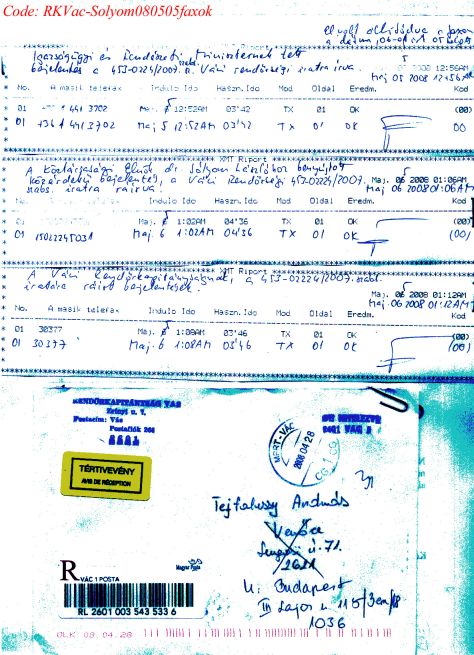 Code: RKVac-Solyom080505faxok
Igazságügyi és Rendészeti miniszternek tett
bejelentés a 453-0224/2007. a Váci rendőrségi iratra írva.
2008 12:56AM
Maj 05 2008 12:56AM
No. A masik telefax Indulo Ido Haszn.Ido Mod Oldal Eredm. Kod
01 441 3702 Maj. 12:52AM 03'42 TX 01 OK (00)
01 +361 4413702 Maj 5 12:52AM 03'42 TX 01 OK 00
XMT Riport
A Köztársasági Elnök dr Sólyom Lászlóhoz benyújtott
közérdekű bejelentés, a Váci Rendőrségi 453-0224/2007.
iratra ráírva.
Maj. 2008 01:06AM
Maj 06 2008 01:06AM
No. A masik telefax Indulo Ido Haszn.Ido Mod Oldal Eredm. Kod
Maj. 1:02AM 04'36 TX 01 OK (00)
01 15022245031 Maj. 6 1:02AM 04'36 TX 01 OK (00)
XMT Riport
A Váci Rendőrkapitányságnak, a 453-02224/2007.
iratára ráírt bejelentések.
Maj. 06 2008 01:12AM
Maj 06 2008 01:12AM
No. A masik telefax Indulo Ido Haszn.Ido Mod Oldal Eredm. Kod
01 30377 Maj. 1:08AM 03'46 TX 01 OK (00)
01 30377 Maj. 6 1:08AM 03'46 TX 01 OK (00)
RENDŐRKAPITÁNYSÁG VÁC
Zrínyi u. 7.
Postacím: Vác
Postafiók 206
TÉRTIVEVÉNY
AVIS DE RÉCEPTION
2008 04 28
Tejfalussy András
Verőce
2621
Új: Budapest
III Lajos u 115
1036
R
VÁC 1 POSTA
Magyar Posta
RL 2601 003 543 533 6
OLK 08.04.28